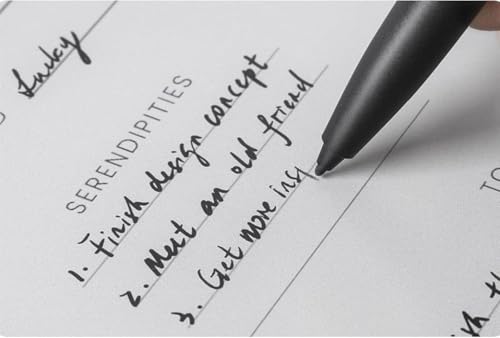 Lucky
SERENDIPITIES
1. Finish design concept
2. Meet an old friend
3. Get more ins
TO